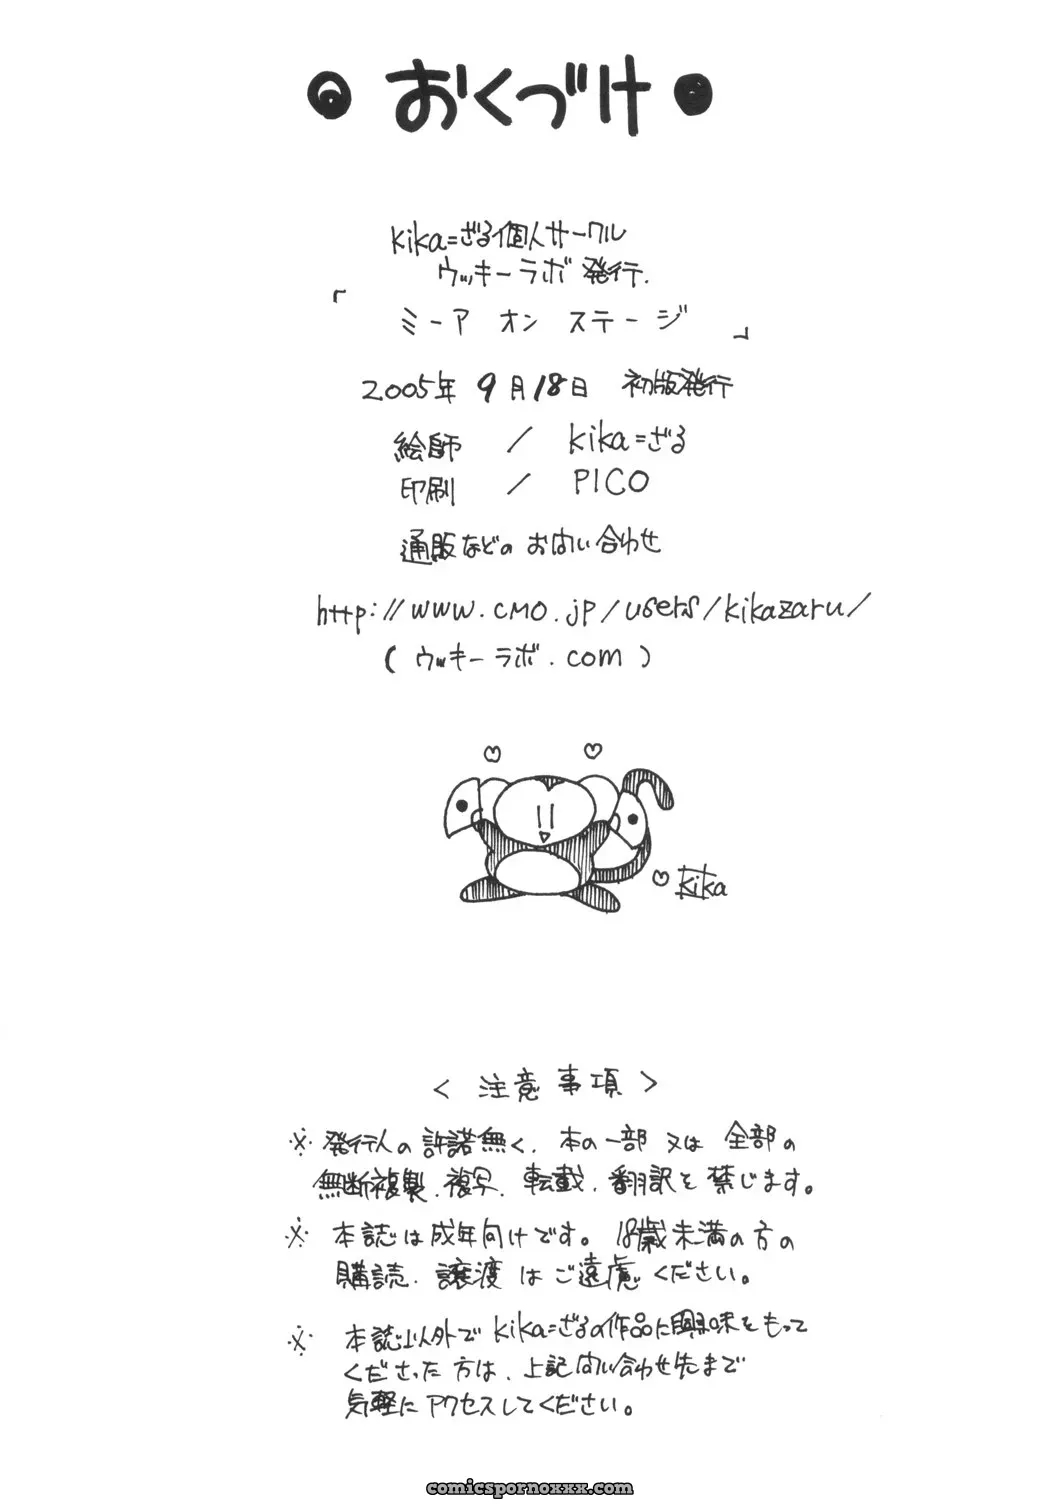 おくづけ
kika=ざる個人サークル
ウッキーラボ発行.
「ミーア オン ステージ」
2005年 9月18日 初版発行
絵師 / kika=ざる
印刷 / PICO
通販などの お問い合わせ
http://www.cmo.jp/users/kikazaru/
(ウッキーラボ.com)
kika
<注意事項>
※発行人の許諾無く、本の一部又は全部の
無断複製、複写、転載、翻訳を禁じます。
※本誌は成年向けです。18歳未満の方の
購読、譲渡はご遠慮ください。
※本誌以外でkika=ざるの作品に興味をもって
くださった方は、上記問い合わせ先まで
気軽にアクセスしてください。
comicspornoxxx.com